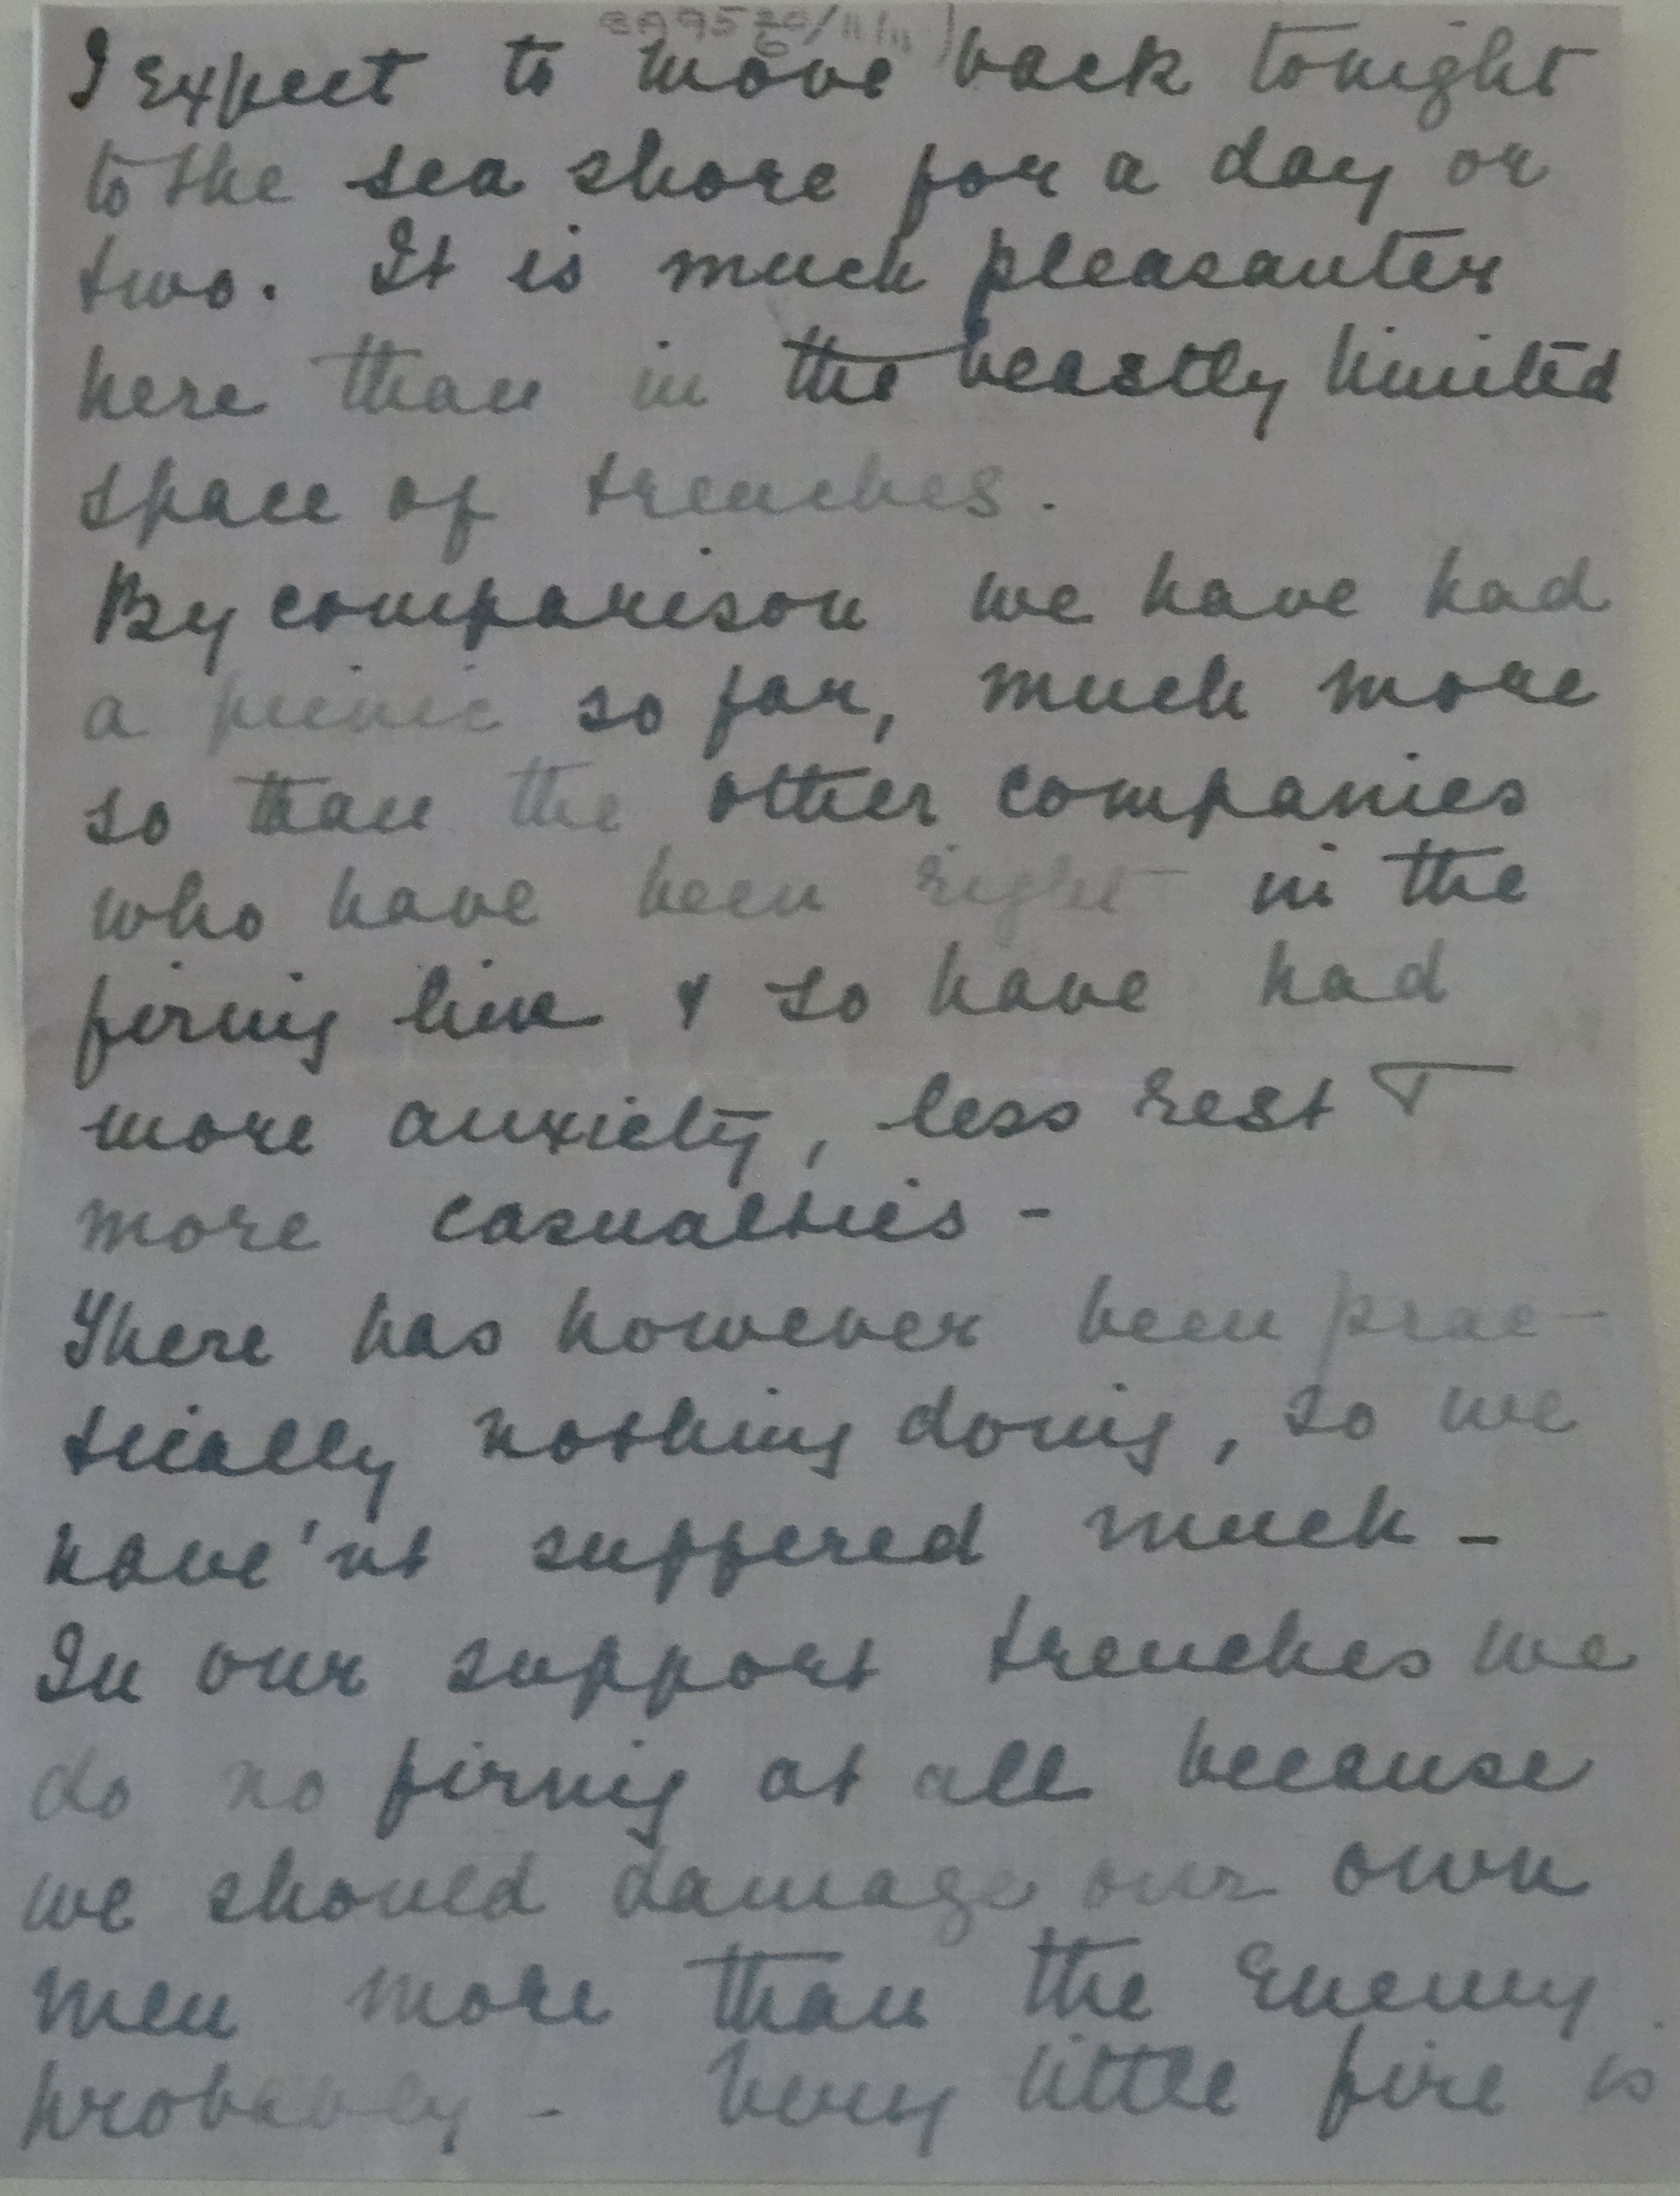 I expect to move back tonight
to the sea shore for a day or
two. It is much pleasanter
here than in the beastly limited
space of trenches.
By comparison we have had
a picnic so far, much more
so than the other companies
who have been right in the
firing line & so have had
more anxiety, less rest &
more casualties -
There has however been prac-
tically nothing doing, so we
have'nt suffered much -
In our support trenches we
do no firing at all because
we should damage our own
men more than the enemy
probably - Very little fire is